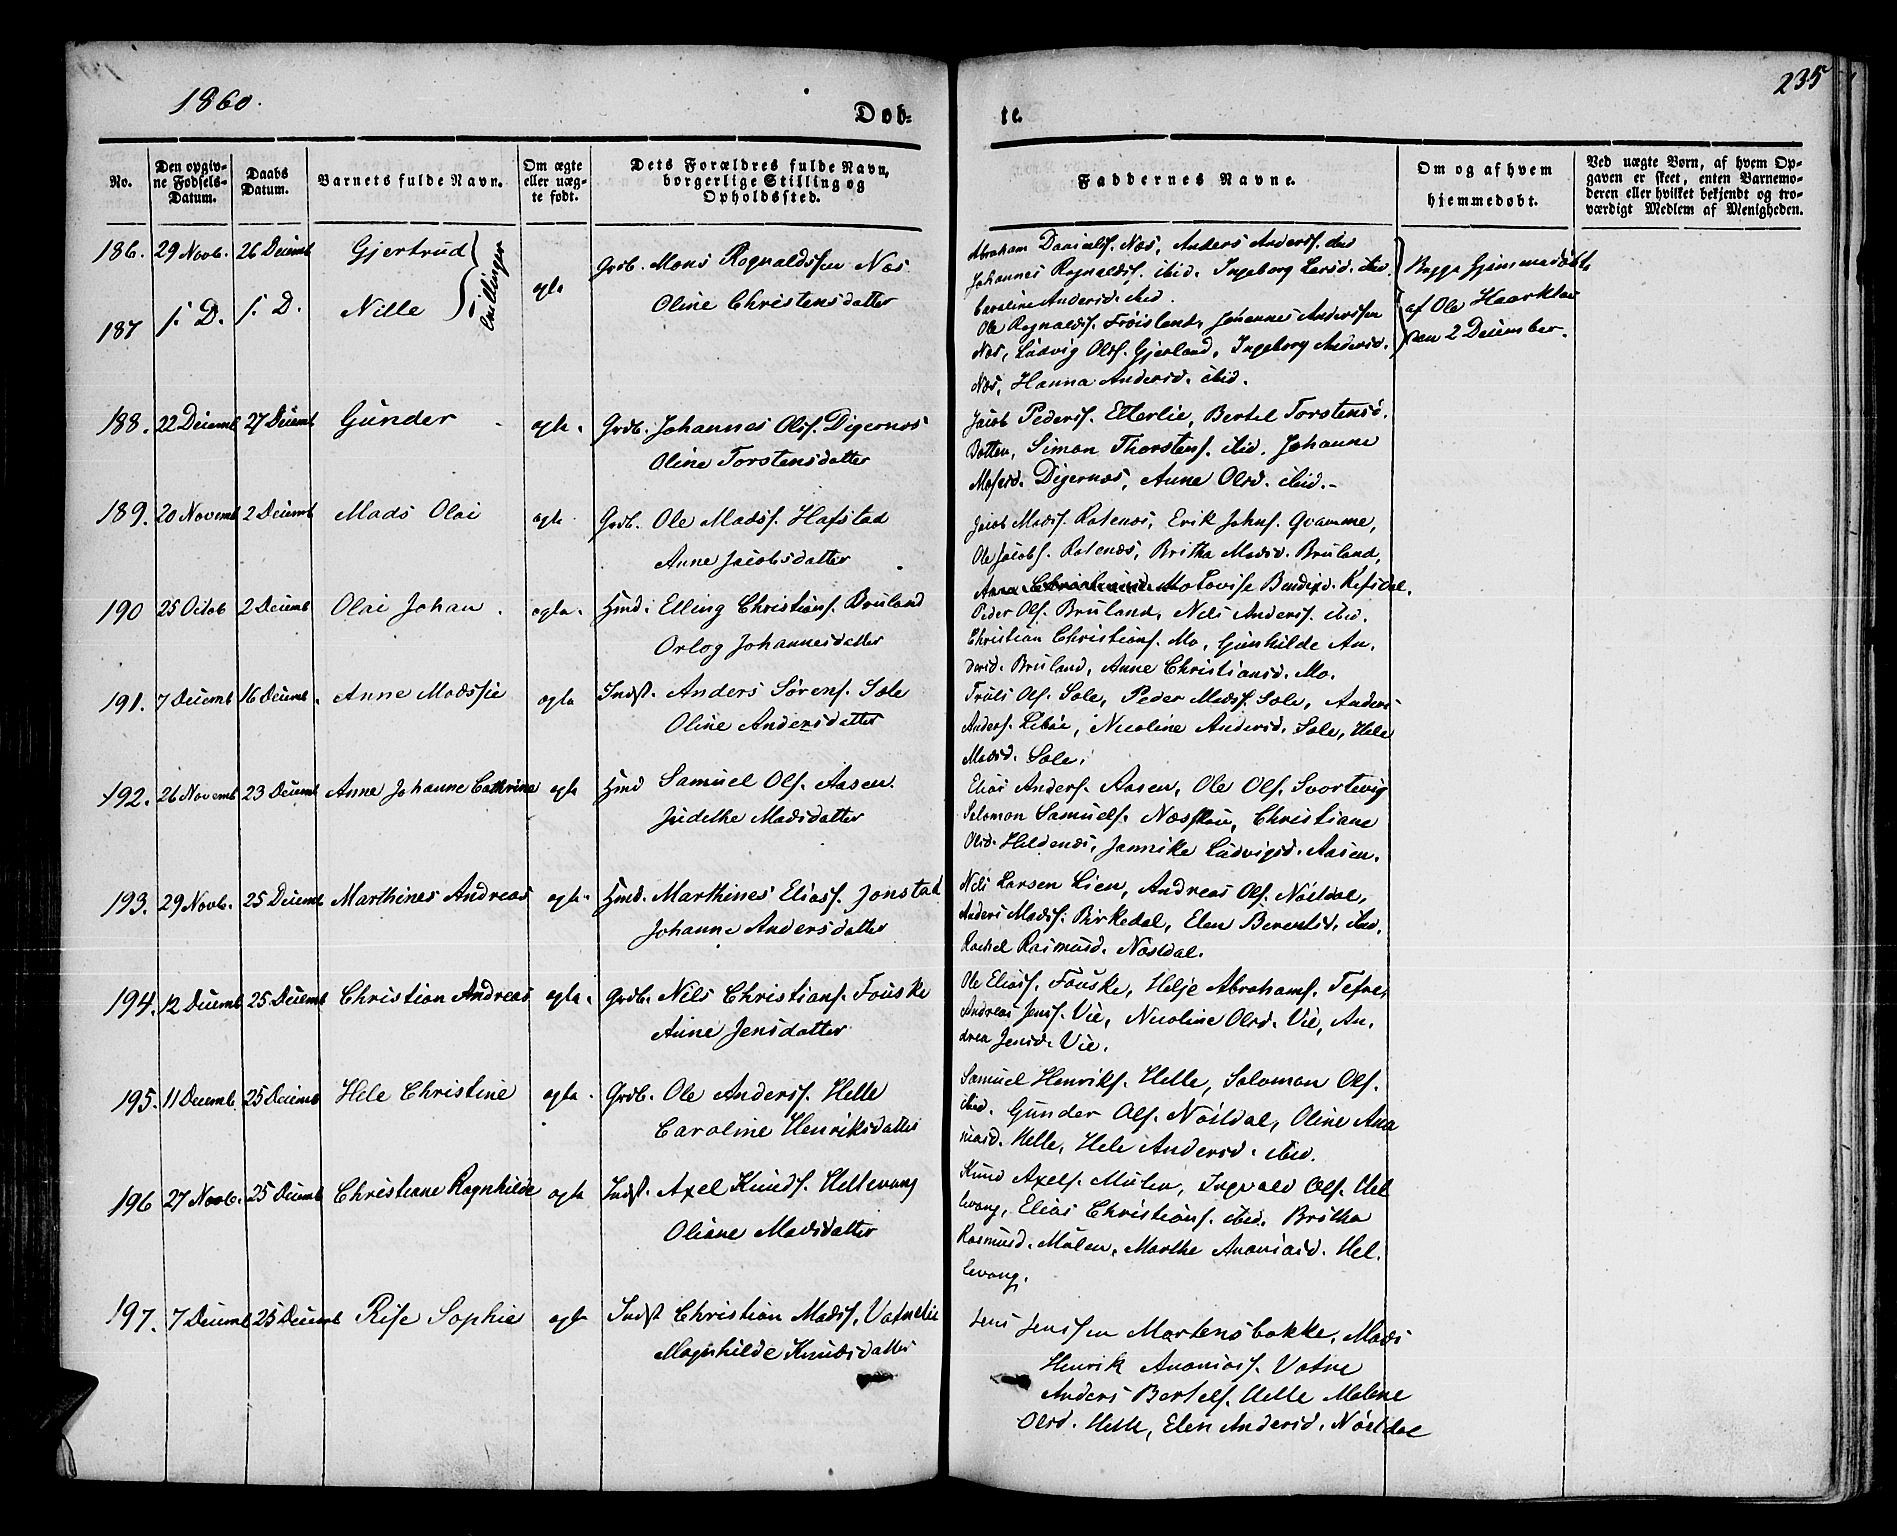 1860.
Døb-
te.
235
No.
Den opgiv-
ne Fødsels-
Datum.
Daabs
Datum.
Barnets fulde Navn.
Om ægte
eller uæg-
te født.
Dets Forældres fulde Navn,
borgerlige Stilling og
Opholdssted.
Faddernes Navne.
Om og af hvem
hjemmedøbt.
Ved uægte Børn, af hvem Op-
gaven er skeet, enten Barnemo-
deren eller hvilket bekjendt og tro-
værdigt Medlem af Menigheden.
186. 29 Novb. 26 Decemb Gjertrud
187 s. D. s. D. Nille
Tvillinger
ægte
Grdb. Mons Rognaldssen Næs
Oline Christensdatter
Abraham Danielss. Næs, Anders Anderss. ibid
Johannes Rognaldss. ibid. Ingeborg Larsd. ibid.
Caroline Andersd. ibid.
Ole Rognaldss. Frøisland, Johannes Anderssen
Næs, Ludvig Olss. Gjerland, Ingeborg Andersd.
Næs, Hanna Andersd. ibid.
Begge Hjemmedøbt
af Ole Haarklau
den 2 December.
188. 22 Decemb 27 Decemb Gunder ægte. Grdb. Johannes Olss. Digernæs
Oline Torstensdatter
Jacob Pederss. Elterlie, Bertel Torstenss.
Botten, Simon Thorstens. ibid. Johanne
Mosesd. Digernæs, Anne Olsd. ibid.
189. 20 Novemb 2 Decemb Mads Olai ægte Grdb. Ole Madss. Hafstad
Anne Jacobsdatter
Jacob Madss. Rotenæs, Erik Johns. Qvamme,
Ole Jacobs. Rotenæs, Britha Madsd. Bruland,
Lovise Bendixd. Refsdal.
190 25 Octob 2 Decemb Olai Johan. ægte. Hmd. Elling Christians. Bruland
Orlog Johannesdatter
Peder Ols. Bruland, Nils Anderss. ibid.
Christian Christians. Mo, Gunhilde An-
dersd. Bruland, Anne Christiansd. Mo.
191. 7 Decemb 16 Decemb. Anne Madssie ægte Indst. Anders Sørens. Sole
Oline Andersdatter
Truls Ols. Sole, Peder Madss. Sole, Anders
Anderss. Liboe, Nicoline Andersd. Sole, Hele
Madsd. Sole.
192. 26 Novemb 23 Decemb Anne Johanne Cathrine ægte Hmd Samuel Ols. Aasen.
Judethe Madsdatter
Elias Anders. Aasen, Ole Ols. Svortevig
Salomon Samuels. Næsstau, Christiane
Olsd. Heldenæs, Jannike Ludvigsd. Aasen.
193. 29 Novb. 25 Decemb Marthines Andreas ægte. Hmd. Marthines Eliass. Jonstad
Johanne Andersdatter
Nils Larsen Lien, Andreas Ols. Nøstdal,
Anders Madss. Birkedal, Elen Berentsd. ibid.
Rachel Rasmusd. Nøstdal.
194. 12 Decemb 25 Decemb Christian Andreas ægte. Grdb. Nils Christians. Fouske
Anne Jensdatter
Ole Eliass. Fouske, Helje Abrahams. Tefre,
Andreas Jenss. Vie, Nicoline Olsd. Vie, An-
drea Jensd. Vie.
195. 11 Decemb. 25 Decemb Hele Christine ægte. Grdb. Ole Anderss. Helle
Caroline Henriksdatter
Samuel Henriks. Helle, Salomon Ols.
ibid. Gunder Ols. Nøstdal, Oline Ana
niasd. Helle, Hele Andersd. ibid.
196 27 Novb. 25 Decemb Christiane Ragnhilde ægte Indst. Axel Knuds. Hellevang
Oliane Madsdatter
Knud Axels. Mulen, Ingvald Ols. Hel
levang, Elias Christians. ibid. Britha
Rasmusd. Mulen, Marthe Ananiasd. Hel-
levang.
197. 7 Decemb 25 Decemb Rise Sophie ægte Indst Christian Madss. Vatnelie
Magnhilde Knudsdatter
Jens Jenssen Martensbakke, Mads
Henrik Ananiass. Vatne
Anders Bertels. Helle Malene
Olsd. Helle, Elen Andersd. Nøstdal